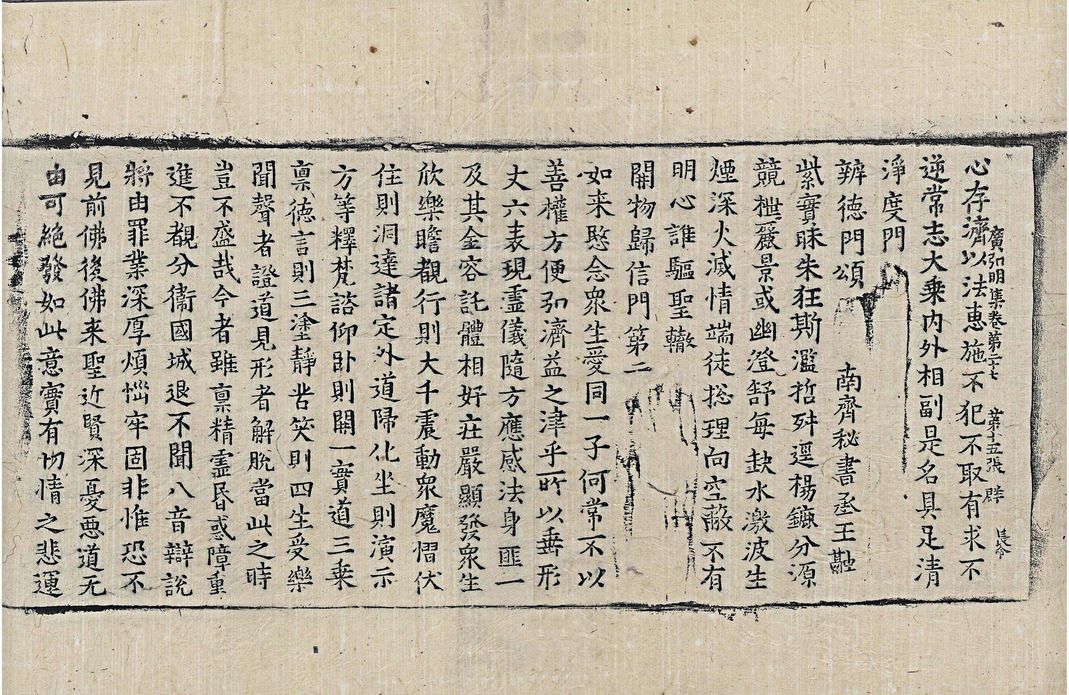 廣弘明集卷第二十七 第十五張 群
心存濟以法惠施不犯不取有求不
逆常志大乘内外相副是名具足清
淨度門
辨德門頌 南齊秘書丞王融
紫實昧朱狂斯濫哲舛逕楊鑣分源
競枻麗景或幽澄舒每缺水激波生
煙深火滅情端徒揔理向空蔽不有
明心誰驅聖轍
開物歸信門第二
如来愍念衆生愛同一子何常不以
善權方便弘濟益之津乎所以垂形
丈六表現靈儀隨方應感法身匪一
及其金容託體相好莊嚴顯發衆生
欣樂瞻觀行則大千震動衆魔慴伏
住則洞達諸定外道歸化坐則演示
方等釋梵諮仰卧則開一實道三乘
稟德言則三塗靜苦笑則四生受樂
聞聲者證道見形者解脫當此之時
豈不盛哉今者雖稟精靈昏惑障重
進不覩分衞國城退不聞八音辯說
將由罪業深厚煩惱牢固非惟恐不
見前佛後佛来聖近賢深憂惡道无
由可絶發如此意實有切情之悲運